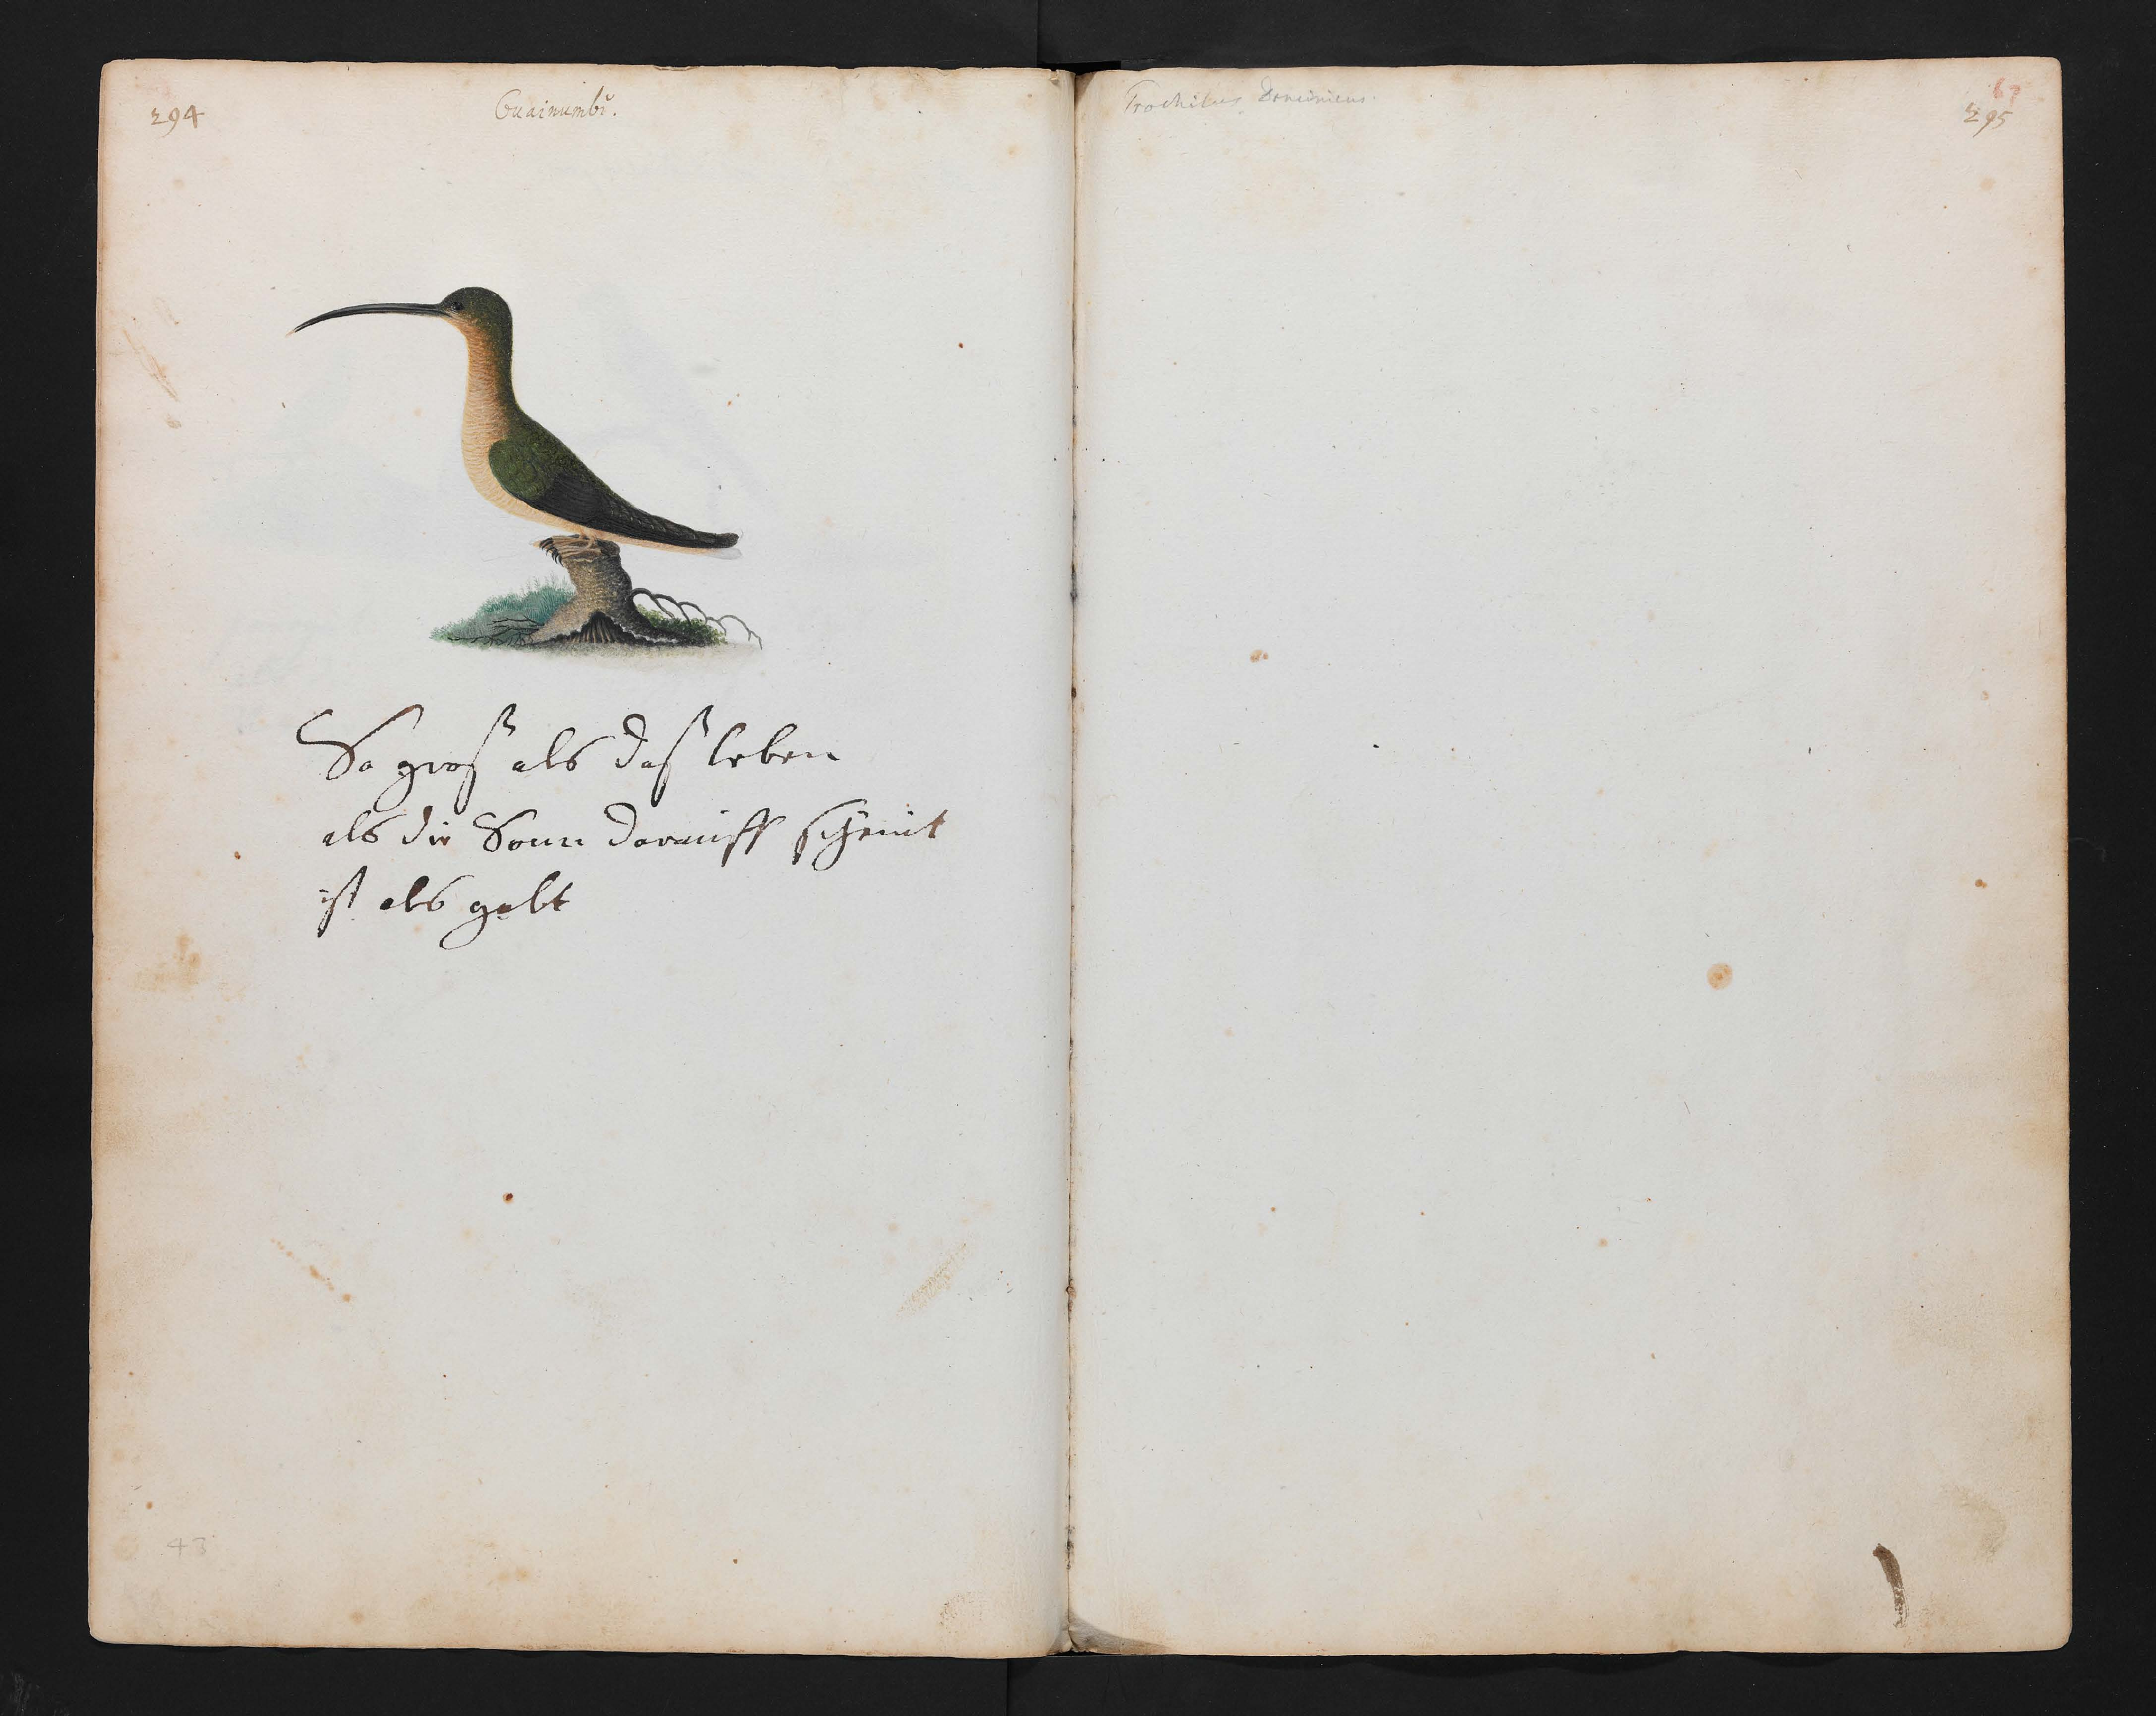 294
Guainumbi.
So groß als daß leben
als die Sonn darauff scheint
ist als golt
43
Trochilus Dominicus.
67
295